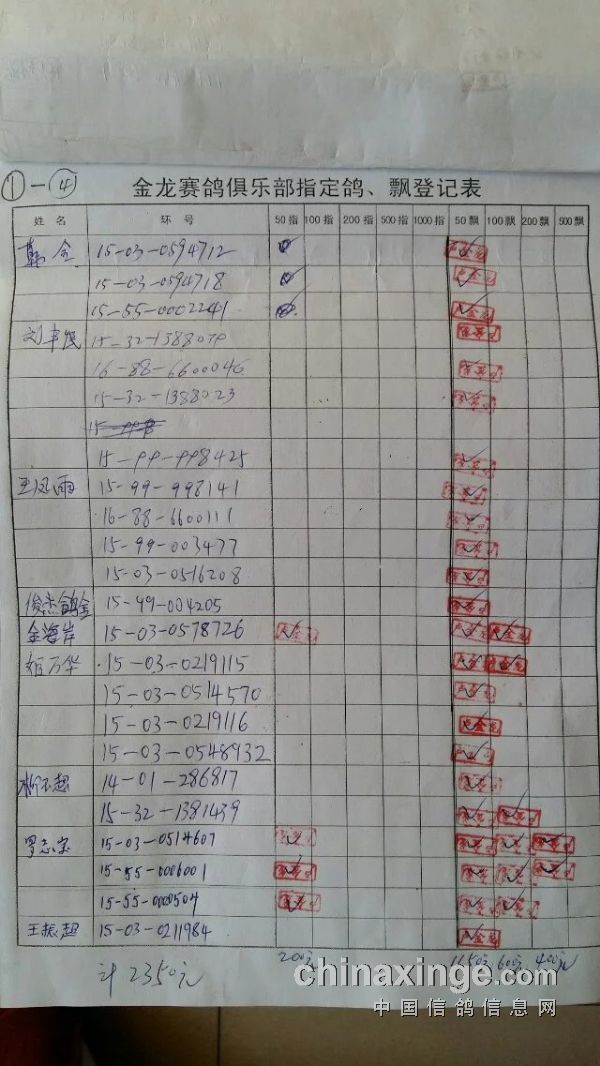 ①-④ 金龙赛鸽俱乐部指定鸽、飘登记表
姓名 环号 50指 100指 200指 500指 1000指 50飘 100飘 200飘 500飘
韩金 15-03-0594712
15-03-0594718
15-55-0002241
刘丰民 15-32-1388079
16-88-6600046
15-32-1388023
15-99-998425
王凤雨 15-99-998141
16-88-6600111
15-99-003477
15-03-0516208
俊杰鸽舍 15-99-004205
金海岸 15-03-0578726
万华 15-03-0219115
15-03-0514570
15-03-0219116
15-03-0548932
超 14-01-286817
15-32-1381439
罗志宝 15-03-0514607
15-55-0006001
15-55-0000504
王振超 15-03-0211984
计2350元 200元 1150元 600元 400元
chinaxinge.com
中国信鸽信息网